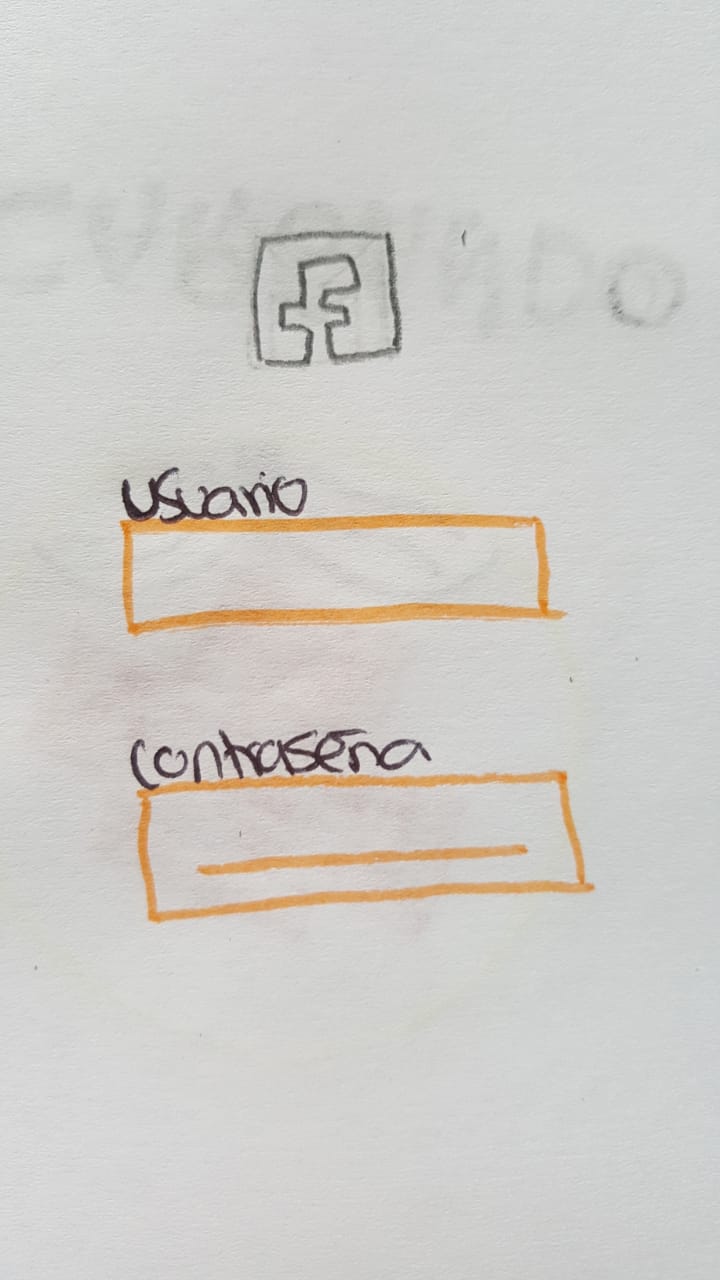 f
usuario
contraseña